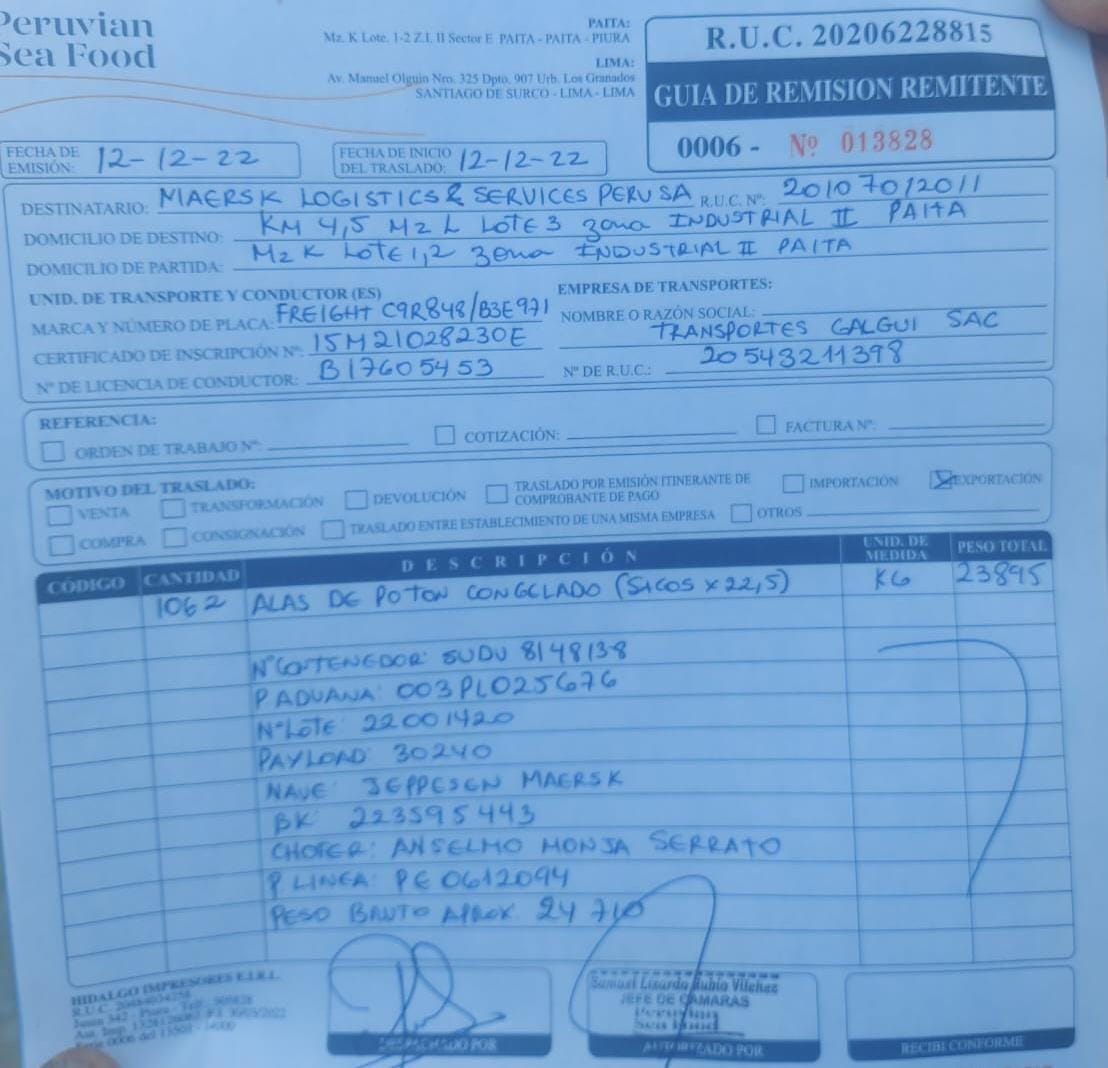 Peruvian
Sea Food
PAITA:
Mz. K Lote. 1-2 Z.I. II Sector E PAITA - PAITA - PIURA
LIMA:
Av. Manuel Olguin Nro. 325 Dpto. 907 Urb. Los Granados
SANTIAGO DE SURCO - LIMA - LIMA
R.U.C. 20206228815
GUIA DE REMISION REMITENTE
0006 - Nº 013828
FECHA DE EMISIÓN: 12-12-22
FECHA DE INICIO DEL TRASLADO: 12-12-22
DESTINATARIO: MAERSK LOGISTICS & SERVICES PERU SA R.U.C. Nº: 20107012011
DOMICILIO DE DESTINO: KM 4,5 Mz L LOTE 3 zona INDUSTRIAL II PAITA
DOMICILIO DE PARTIDA: Mz K LOTE 1,2 zona INDUSTRIAL II PAITA
UNID. DE TRANSPORTE Y CONDUCTOR (ES)
MARCA Y NÚMERO DE PLACA: FREIGHT C9R848/B3E971
CERTIFICADO DE INSCRIPCIÓN Nº: 15M21028230E
Nº DE LICENCIA DE CONDUCTOR: B17605453
EMPRESA DE TRANSPORTES:
NOMBRE O RAZÓN SOCIAL: TRANSPORTES GALGUI SAC
Nº DE R.U.C.: 20543211398
REFERENCIA:
ORDEN DE TRABAJO Nº: COTIZACIÓN: FACTURA Nº:
MOTIVO DEL TRASLADO:
VENTA TRANSFORMACIÓN DEVOLUCIÓN TRASLADO POR EMISIÓN ITINERANTE DE COMPROBANTE DE PAGO IMPORTACIÓN EXPORTACIÓN
COMPRA CONSIGNACIÓN TRASLADO ENTRE ESTABLECIMIENTO DE UNA MISMA EMPRESA OTROS
CÓDIGO CANTIDAD DESCRIPCIÓN UNID. DE MEDIDA PESO TOTAL
1062 ALAS DE POTON CONGELADO (SACOS x 22,5) KG 23895
Nº CONTENEDOR: SUDU 8148138
P ADUANA: 003PL025676
Nº LOTE: 22001420
PAYLOAD: 30240
NAVE: JEPPESEN MAERSK
BK: 223595443
CHOFER: ANSELMO MONJA SERRATO
P. LINEA: PE 0612094
PESO BRUTO APROX. 24 710
HIDALGO IMPRESORES E.I.R.L.
Samuel Lisardo Rubio Vilchez
JEFE DE CAMARAS
DESPACHADO POR
AUTORIZADO POR
RECIBI CONFORME